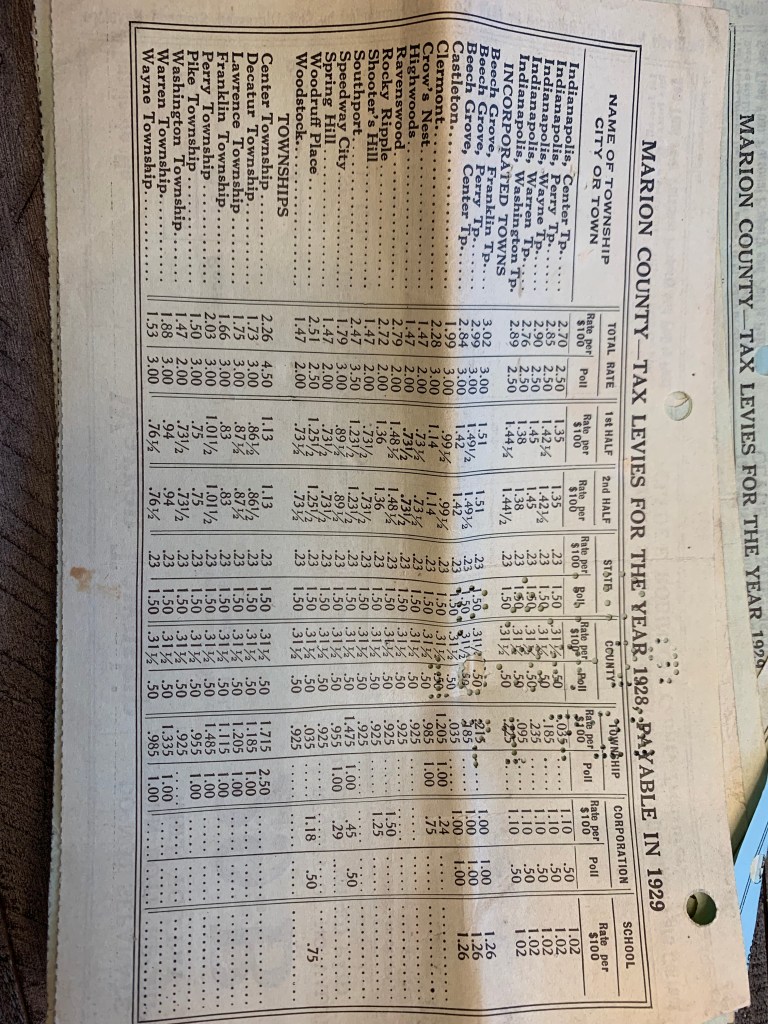 MARION COUNTY—TAX LEVIES FOR THE YEAR 1929
MARION COUNTY—TAX LEVIES FOR THE YEAR 1928, PAYABLE IN 1929
NAME OF TOWNSHIP CITY OR TOWN TOTAL RATE 1st HALF 2nd HALF STATE COUNTY TOWNSHIP CORPORATION SCHOOL
Rate per $100 Poll Rate per $100 Rate per $100 Rate per $100 Poll Rate per $100 Poll Rate per $100 Poll Rate per $100 Poll Rate per $100
Indianapolis, Center Tp. 2.70 2.50 1.35 1.35 .23 1.50 .31½ .50 .035 1.10 .50 1.02
Indianapolis, Perry Tp. 2.85 2.50 1.42½ 1.42½ .23 1.50 .31½ .50 .185 1.10 .50 1.02
Indianapolis, Wayne Tp. 2.90 2.50 1.45 1.45 .23 1.50 .31½ .50 .235 1.10 .50 1.02
Indianapolis, Warren Tp. 2.76 2.50 1.38 1.38 .23 1.50 .31½ .50 .095 1.10 .50 1.02
Indianapolis, Washington Tp. 2.89 2.50 1.44½ 1.44½ .23 1.50 .31½ .50 1.10 .50 1.02
INCORPORATED TOWNS
Beech Grove, Franklin Tp. 3.02 3.00 1.51 1.51 .23 1.50 .31½ .50 .215 1.00 1.00 1.26
Beech Grove, Perry Tp. 2.99 3.00 1.49½ 1.49½ .23 1.50 .31½ .50 .185 1.00 1.00 1.26
Beech Grove, Center Tp. 2.84 3.00 1.42 1.42 .23 1.50 .31½ .50 .035 1.00 1.00 1.26
Castleton 1.99 3.00 .99½ .99½ .23 1.50 .31½ .50 1.205 1.00 .24
Clermont 2.28 3.00 1.14 1.14 .23 1.50 .31½ .50 .985 1.00 .75
Crow's Nest 1.47 2.00 .73½ .73½ .23 1.50 .31½ .50 .925
Highwoods 1.47 2.00 .73½ .73½ .23 1.50 .31½ .50 .925
Ravenswood 2.79 2.00 1.48½ 1.48½ .23 1.50 .31½ .50 .925 1.50
Rocky Ripple 2.72 2.00 1.36 1.36 .23 1.50 .31½ .50 .925 1.25
Shooter's Hill 1.47 2.00 .73½ .73½ .23 1.50 .31½ .50 .925
Southport 2.47 3.50 1.23½ 1.23½ .23 1.50 .31½ .50 1.475 1.00 .45 .50
Speedway City 1.79 3.00 .89½ .89½ .23 1.50 .31½ .50 .955 1.00 .29
Spring Hill 1.47 2.00 .73½ .73½ .23 1.50 .31½ .50 .925
Woodruff Place 2.51 2.50 1.25½ 1.25½ .23 1.50 .31½ .50 .035 1.18 .50 .75
Woodstock 1.47 2.00 .73½ .73½ .23 1.50 .31½ .50 .925
TOWNSHIPS
Center Township 2.26 4.50 1.13 1.13 .23 1.50 .31½ .50 1.715 2.50
Decatur Township 1.73 3.00 .86½ .86½ .23 1.50 .31½ .50 1.185 1.00
Lawrence Township 1.75 3.00 .87½ .87½ .23 1.50 .31½ .50 1.205 1.00
Franklin Township 1.66 3.00 .83 .83 .23 1.50 .31½ .50 1.115 1.00
Perry Township 2.03 3.00 1.01½ 1.01½ .23 1.50 .31½ .50 1.485 1.00
Pike Township 1.50 3.00 .75 .75 .23 1.50 .31½ .50 .955 1.00
Washington Township 1.47 2.00 .73½ .73½ .23 1.50 .31½ .50 .925
Warren Township 1.88 3.00 .94 .94 .23 1.50 .31½ .50 1.335 1.00
Wayne Township 1.53 3.00 .76½ .76½ .23 1.50 .31½ .50 .985 1.00